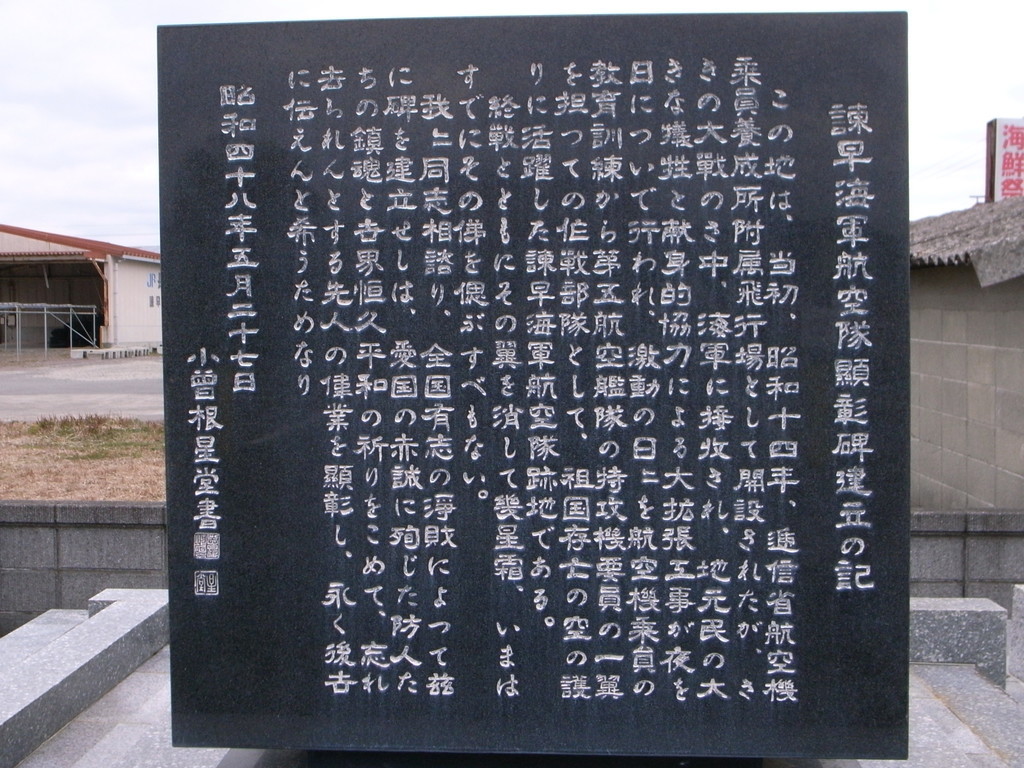 諫早海軍航空隊顕彰碑建立の記
この地は、当初、昭和十四年、逓信省航空機
乗員養成所附属飛行場として開設されたが、さ
きの大戦のさ中、海軍に接收され、地元民の大
きな犠牲と献身的協力による大拡張工事が夜を
日についで行われ、激動の日々を航空機乗員の
教育訓練から第五航空艦隊の特攻機要員の一翼
を担っての作戦部隊として、祖国存亡の空の護
りに活躍した諫早海軍航空隊跡地である。
終戦とともにその翼を消して幾星霜、いまは
すでにその俤を偲ぶすべもない。
我々同志相諮り、全国有志の浄財によって茲
に碑を建立せしは、愛国の赤誠に殉じた防人た
ちの鎮魂と吉界恒久平和の祈りをこめて、忘れ
去られんとする先人の偉業を顕彰し、永く後古
に伝えんと希うためなり
昭和四十八年五月二十七日
小曽根星堂書
海鮮祭